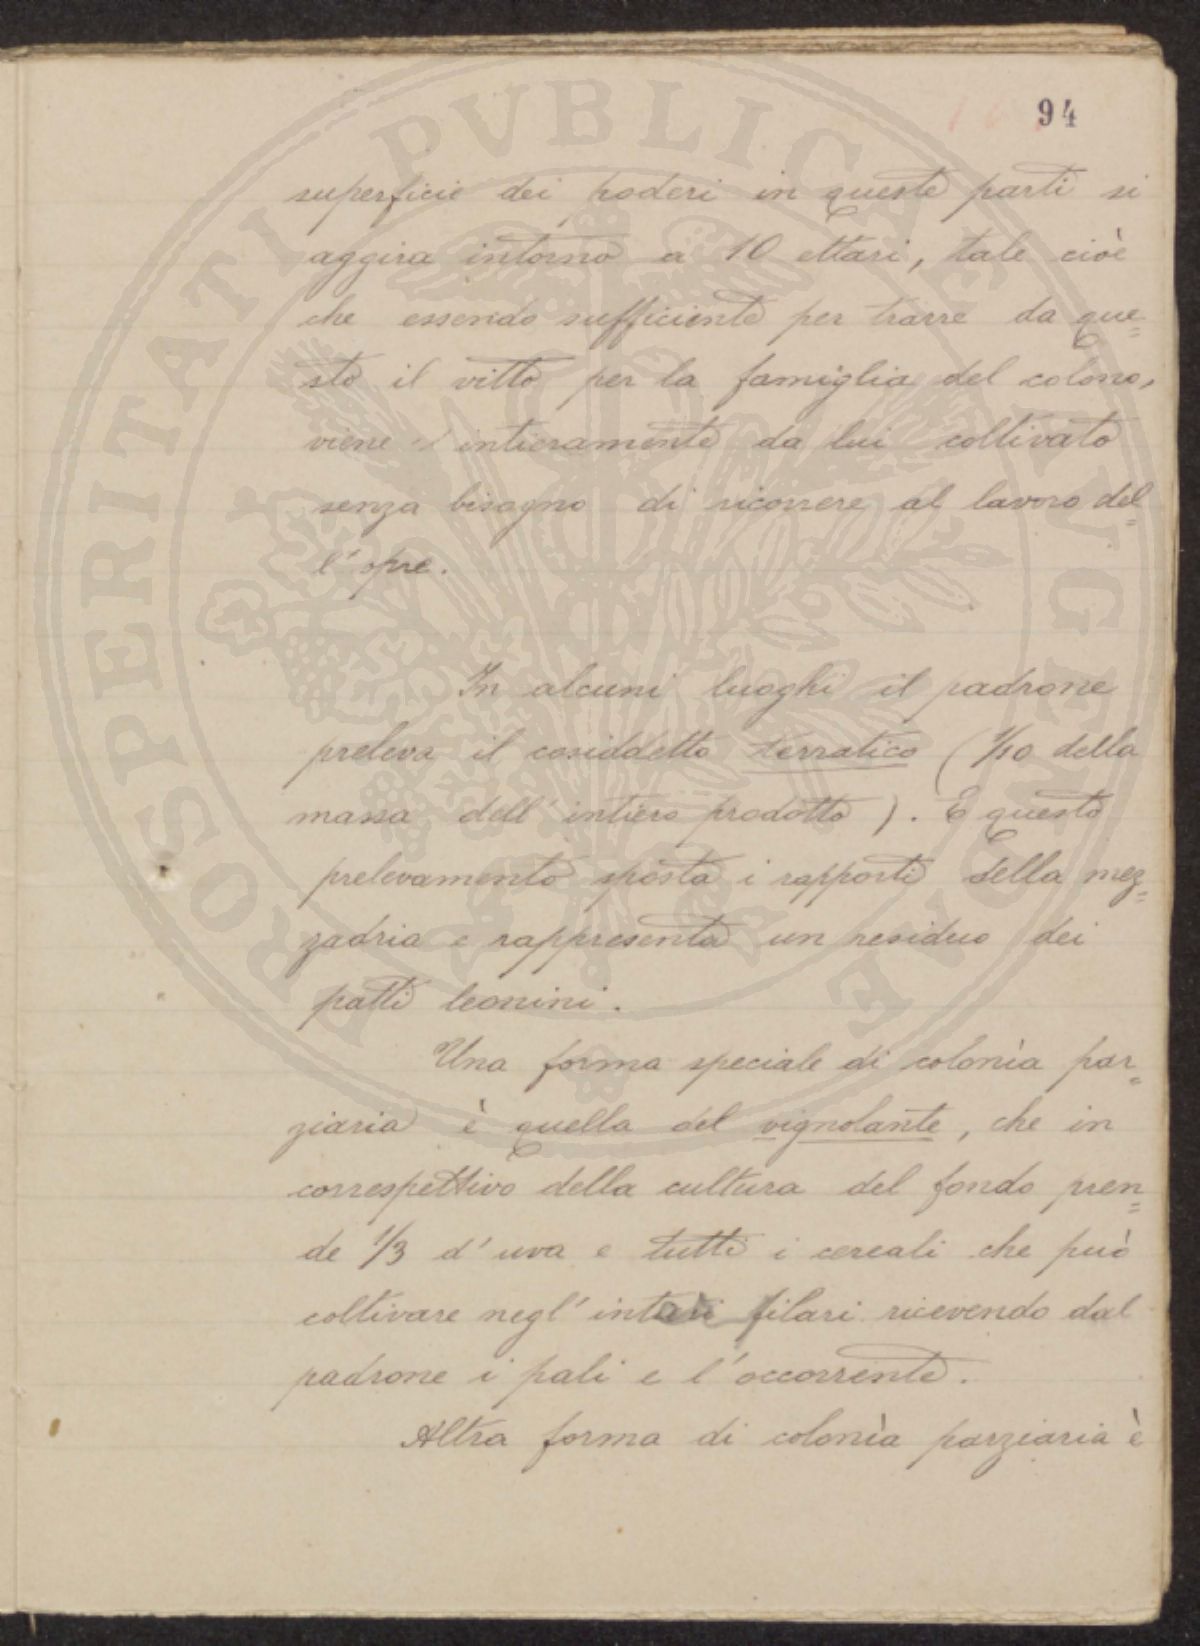 94
superficie dei poderi in queste parti si
aggira intorno a 10 ettari, tale cioè
che essendo sufficiente per trarre da que=
sto il vitto per la famiglia del colono,
viene intieramente da lui coltivato
senza bisogno di ricorrere al lavoro del=
l'opre.
In alcuni luoghi il padrone
preleva il cosiddetto terratico (1/10 della
massa dell'intiero prodotto). E questo
prelevamento sposta i rapporti della mez=
zadria e rappresenta un residuo dei
patti leonini.
Una forma speciale di colonìa par=
ziaria è quella del vignolante, che in
correspettivo della cultura del fondo pren=
de 1/3 d'uva e tutti i cereali che può
coltivare negl' filari ricevendo dal
padrone i pali e l'occorrente.
Altra forma di colonìa parziaria è
PROSPERITATI PVBLICAE AVGENDAE